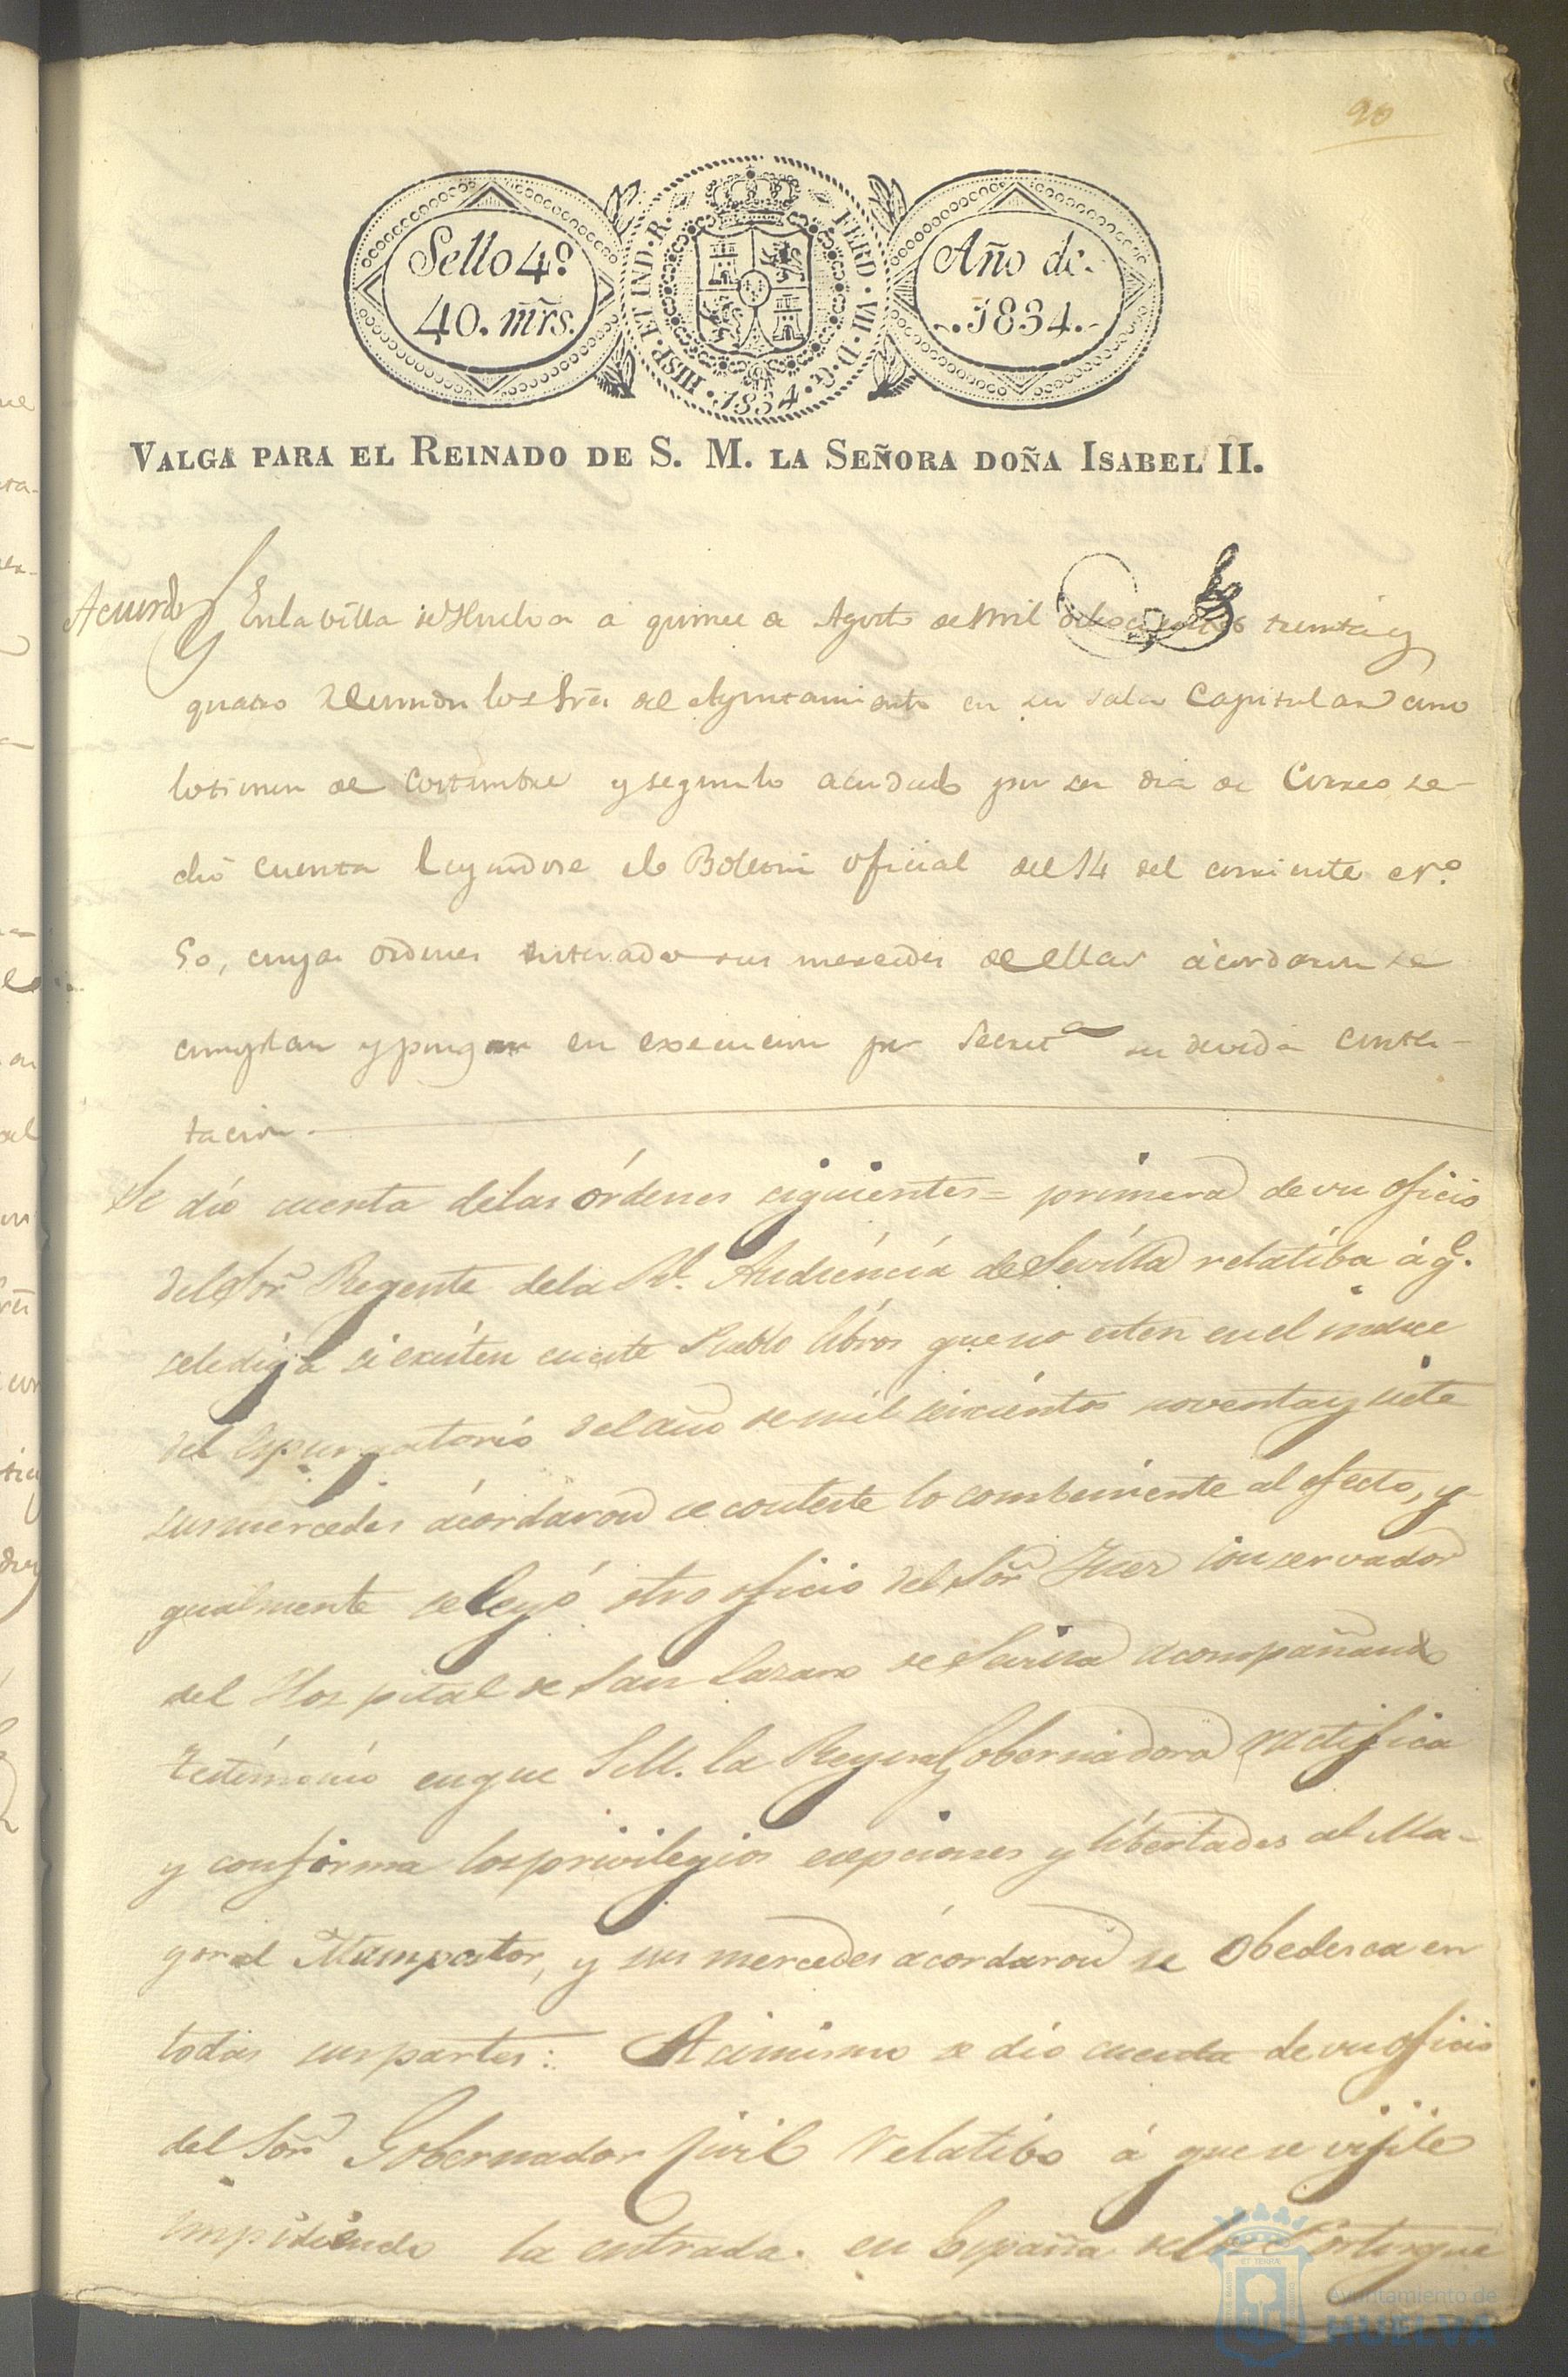 90
Sello 4º
40. mrs.
HISP. ET IND. R. FERD. VII. D. G. 1834.
Año de
1834.
VALGA PARA EL REINADO DE S. M. LA SEÑORA DOÑA ISABEL II.
Acuerdo
En la villa de Huelva a quince de Agosto de mil ochocientos treinta y
quatro reunidos los Sres del Ayuntamiento en su sala Capitular como
lo tienen de costumbre y segun lo acordado por ser dia de Correo se
dió cuenta leyendose el Boletin oficial del 14 del corriente nº
50, cuyas ordenes enteradas sus mercedes de ellas ácordaron se
cumplan y pongan en execucion por Secretª su devida contes-
tacion.
Se dió cuenta delas órdenes siguientes = primera de un oficio
del Sor Regente dela Rl. Audiéncia de Sevilla relatiba á q.e
sele diga si existen en este Pueblo libros que no esten en el indice
del Espurgatorio del año de mil seiscientos noventa y siete
sus mercedes ácordaron se conteste lo combeniente al efecto, y
gualmente se leyó otro oficio del Sor Juez Conservador
del Hospital de San Lazaro de Sevilla acompañando
testimonio en que S.M. la Reyna Gobernadora ratifica
y confirma los privilegios exepciones y libertades al Ma-
yoral Mampastor, y sus mercedes ácordaron se obedesca en
todas sus partes: Asimismo se dió cuenta de un oficio
del Sor Gobernador Civil relatibo á que se vijile
impidiendo la entrada en España del Portugue
Ayuntamiento de
HUELVA